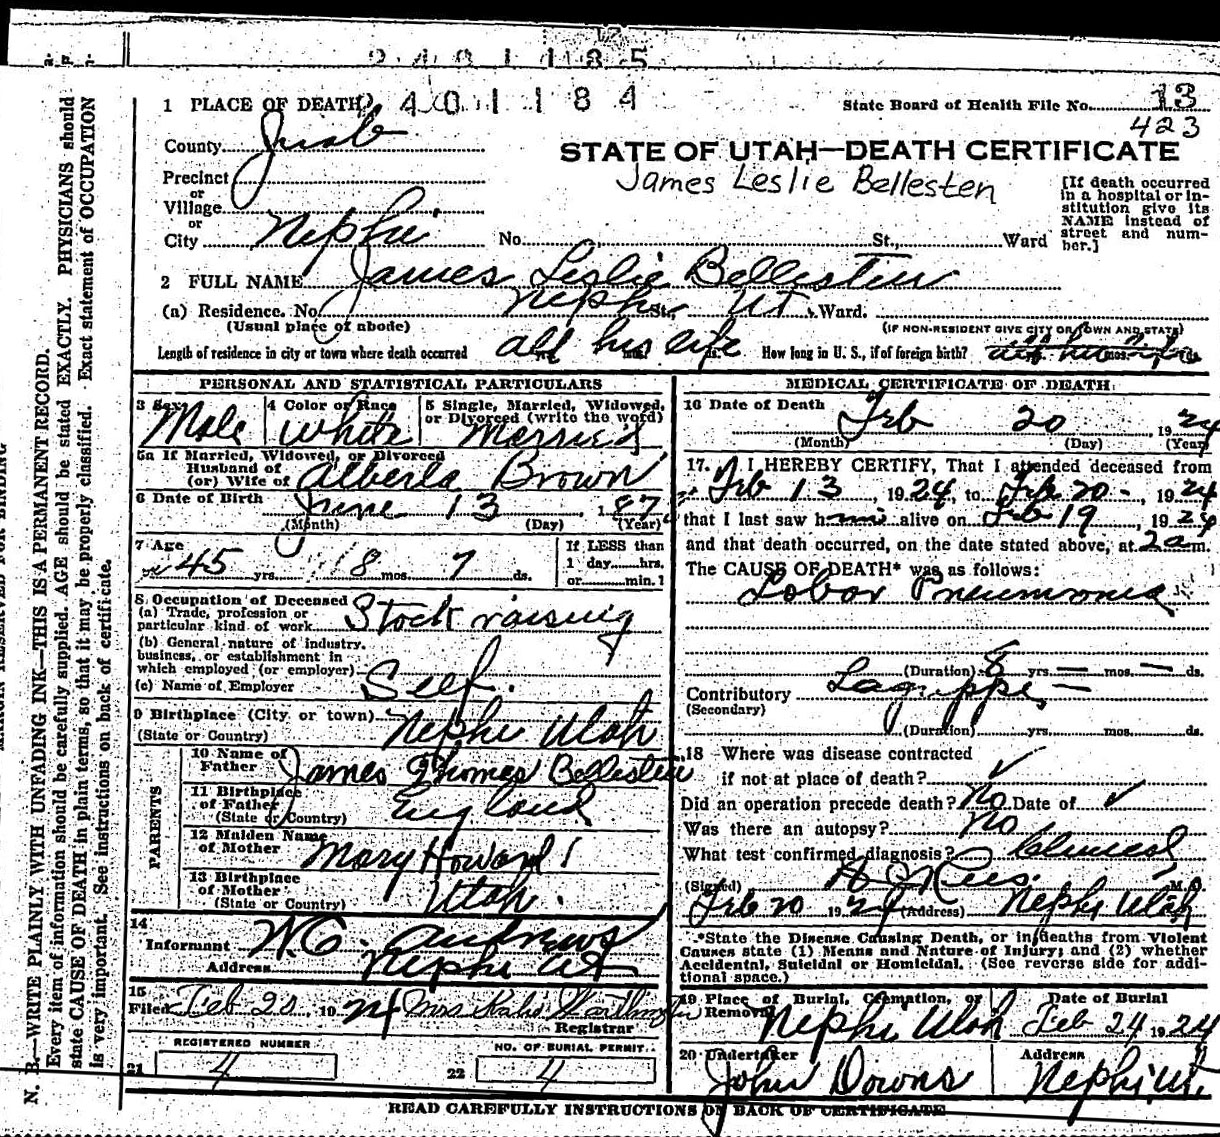 2401185
1 PLACE OF DEATH 401184 State Board of Health File No. 13
423
County Juab
STATE OF UTAH—DEATH CERTIFICATE
James Leslie Bellesten
Precinct
or
Village
or
City Nephi No. St., Ward
[If death occurred
in a hospital or in-
stitution give its
NAME instead of
street and num-
ber.]
2 FULL NAME James Leslie Bellesten
(a) Residence. No. Nephi St. UT Ward.
(Usual place of abode) (IF NON-RESIDENT GIVE CITY OR TOWN AND STATE)
Length of residence in city or town where death occurred all his life yrs. mos. ds. How long in U. S., if of foreign birth? all his life
PERSONAL AND STATISTICAL PARTICULARS
3 Sex Male
4 Color or Race White
5 Single, Married, Widowed,
or Divorced (write the word)
Married
5a If Married, Widowed, or Divorced
Husband of
(or) Wife of Alberta Brown
6 Date of Birth June 13 187
(Month) (Day) (Year)
7 Age 45 yrs. 8 mos. 7 ds.
If LESS than
1 day hrs.
or min.
8 Occupation of Deceased
(a) Trade, profession or
particular kind of work Stock raising
(b) General nature of industry,
business, or establishment in
which employed (or employer)
(c) Name of Employer Self.
9 Birthplace (City or town) Nephi Utah
(State or Country)
PARENTS
10 Name of
Father James Thomas Bellesten
11 Birthplace
of Father England
(State or Country)
12 Maiden Name
of Mother Mary Howard
13 Birthplace
of Mother Utah.
(State or Country)
14
Informant W.C. Andrews
Address Nephi Ut
15
Filed Feb 20, 1924 Mrs
Registrar
REGISTERED NUMBER
21 4
NO. OF BURIAL PERMIT.
22 4
MEDICAL CERTIFICATE OF DEATH
16 Date of Death Feb 20 1924
(Month) (Day) (Year)
17. I HEREBY CERTIFY, That I attended deceased from
Feb 13, 1924, to Feb 20 -, 1924
that I last saw him alive on Feb 19, 1924
and that death occurred, on the date stated above, at 2a m.
The CAUSE OF DEATH* was as follows:
Lobar Pneumonia
(Duration) 8 yrs. — mos. — ds.
Contributory Lagrippe —
(Secondary)
(Duration) yrs. mos. ds.
18 Where was disease contracted
if not at place of death? ✓
Did an operation precede death? No Date of ✓
Was there an autopsy? No
What test confirmed diagnosis? Clinical
(Signed) Rees. M.D.
Feb 20 1924 (Address) Nephi Utah
*State the Disease Causing Death, or in deaths from Violent
Causes state (1) Means and Nature of Injury; and (2) whether
Accidental, Suicidal or Homicidal. (See reverse side for addi-
tional space.)
19 Place of Burial, Cremation, or
Removal Nephi Utah
Date of Burial
Feb 24 1924
20 Undertaker
John Downs
Address
Nephi, Ut.
READ CAREFULLY INSTRUCTIONS ON BACK OF CERTIFICATE
MARGIN RESERVED FOR BINDING
N. B.—WRITE PLAINLY WITH UNFADING INK—THIS IS A PERMANENT RECORD.
Every item of information should be carefully supplied. AGE should be stated EXACTLY. PHYSICIANS should
state CAUSE OF DEATH in plain terms, so that it may be properly classified. Exact statement of OCCUPATION
is very important. See instructions on back of certificate.